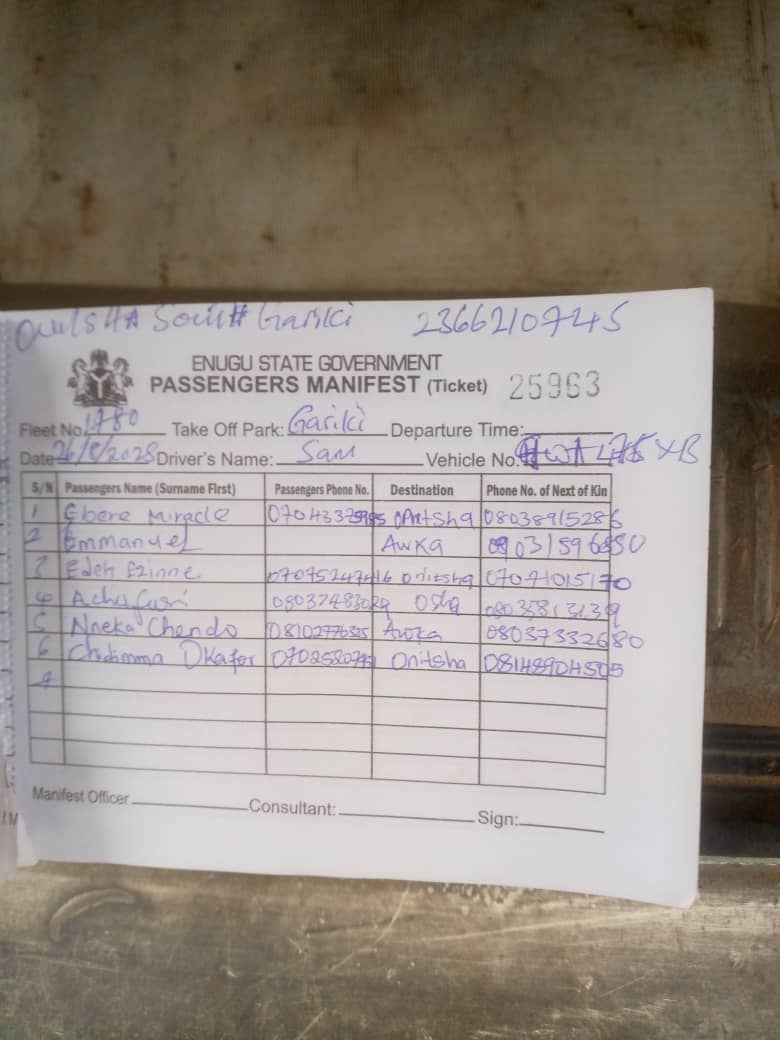 South Gariki 2366210745
ENUGU STATE GOVERNMENT
PASSENGERS MANIFEST (Ticket) 25963
Fleet No. 1780 Take Off Park: Gariki Departure Time:
Date 26/8/2025 Driver's Name: Sam Vehicle No. XB
S/N Passengers Name (Surname First) Passengers Phone No. Destination Phone No. of Next of Kin
1 Ebere Miracle Onitsha 08038915286
2 Emmanuel Awka 09031596850
3 Edeh Ezinne 07075247416 Onitsha 07071015170
4 08037483029 Osha
5 Nneka Chendo 08102776325 Awka 08037332680
6 Chidinma Okafor Onitsha 08148904505
7
Manifest Officer Consultant: Sign: